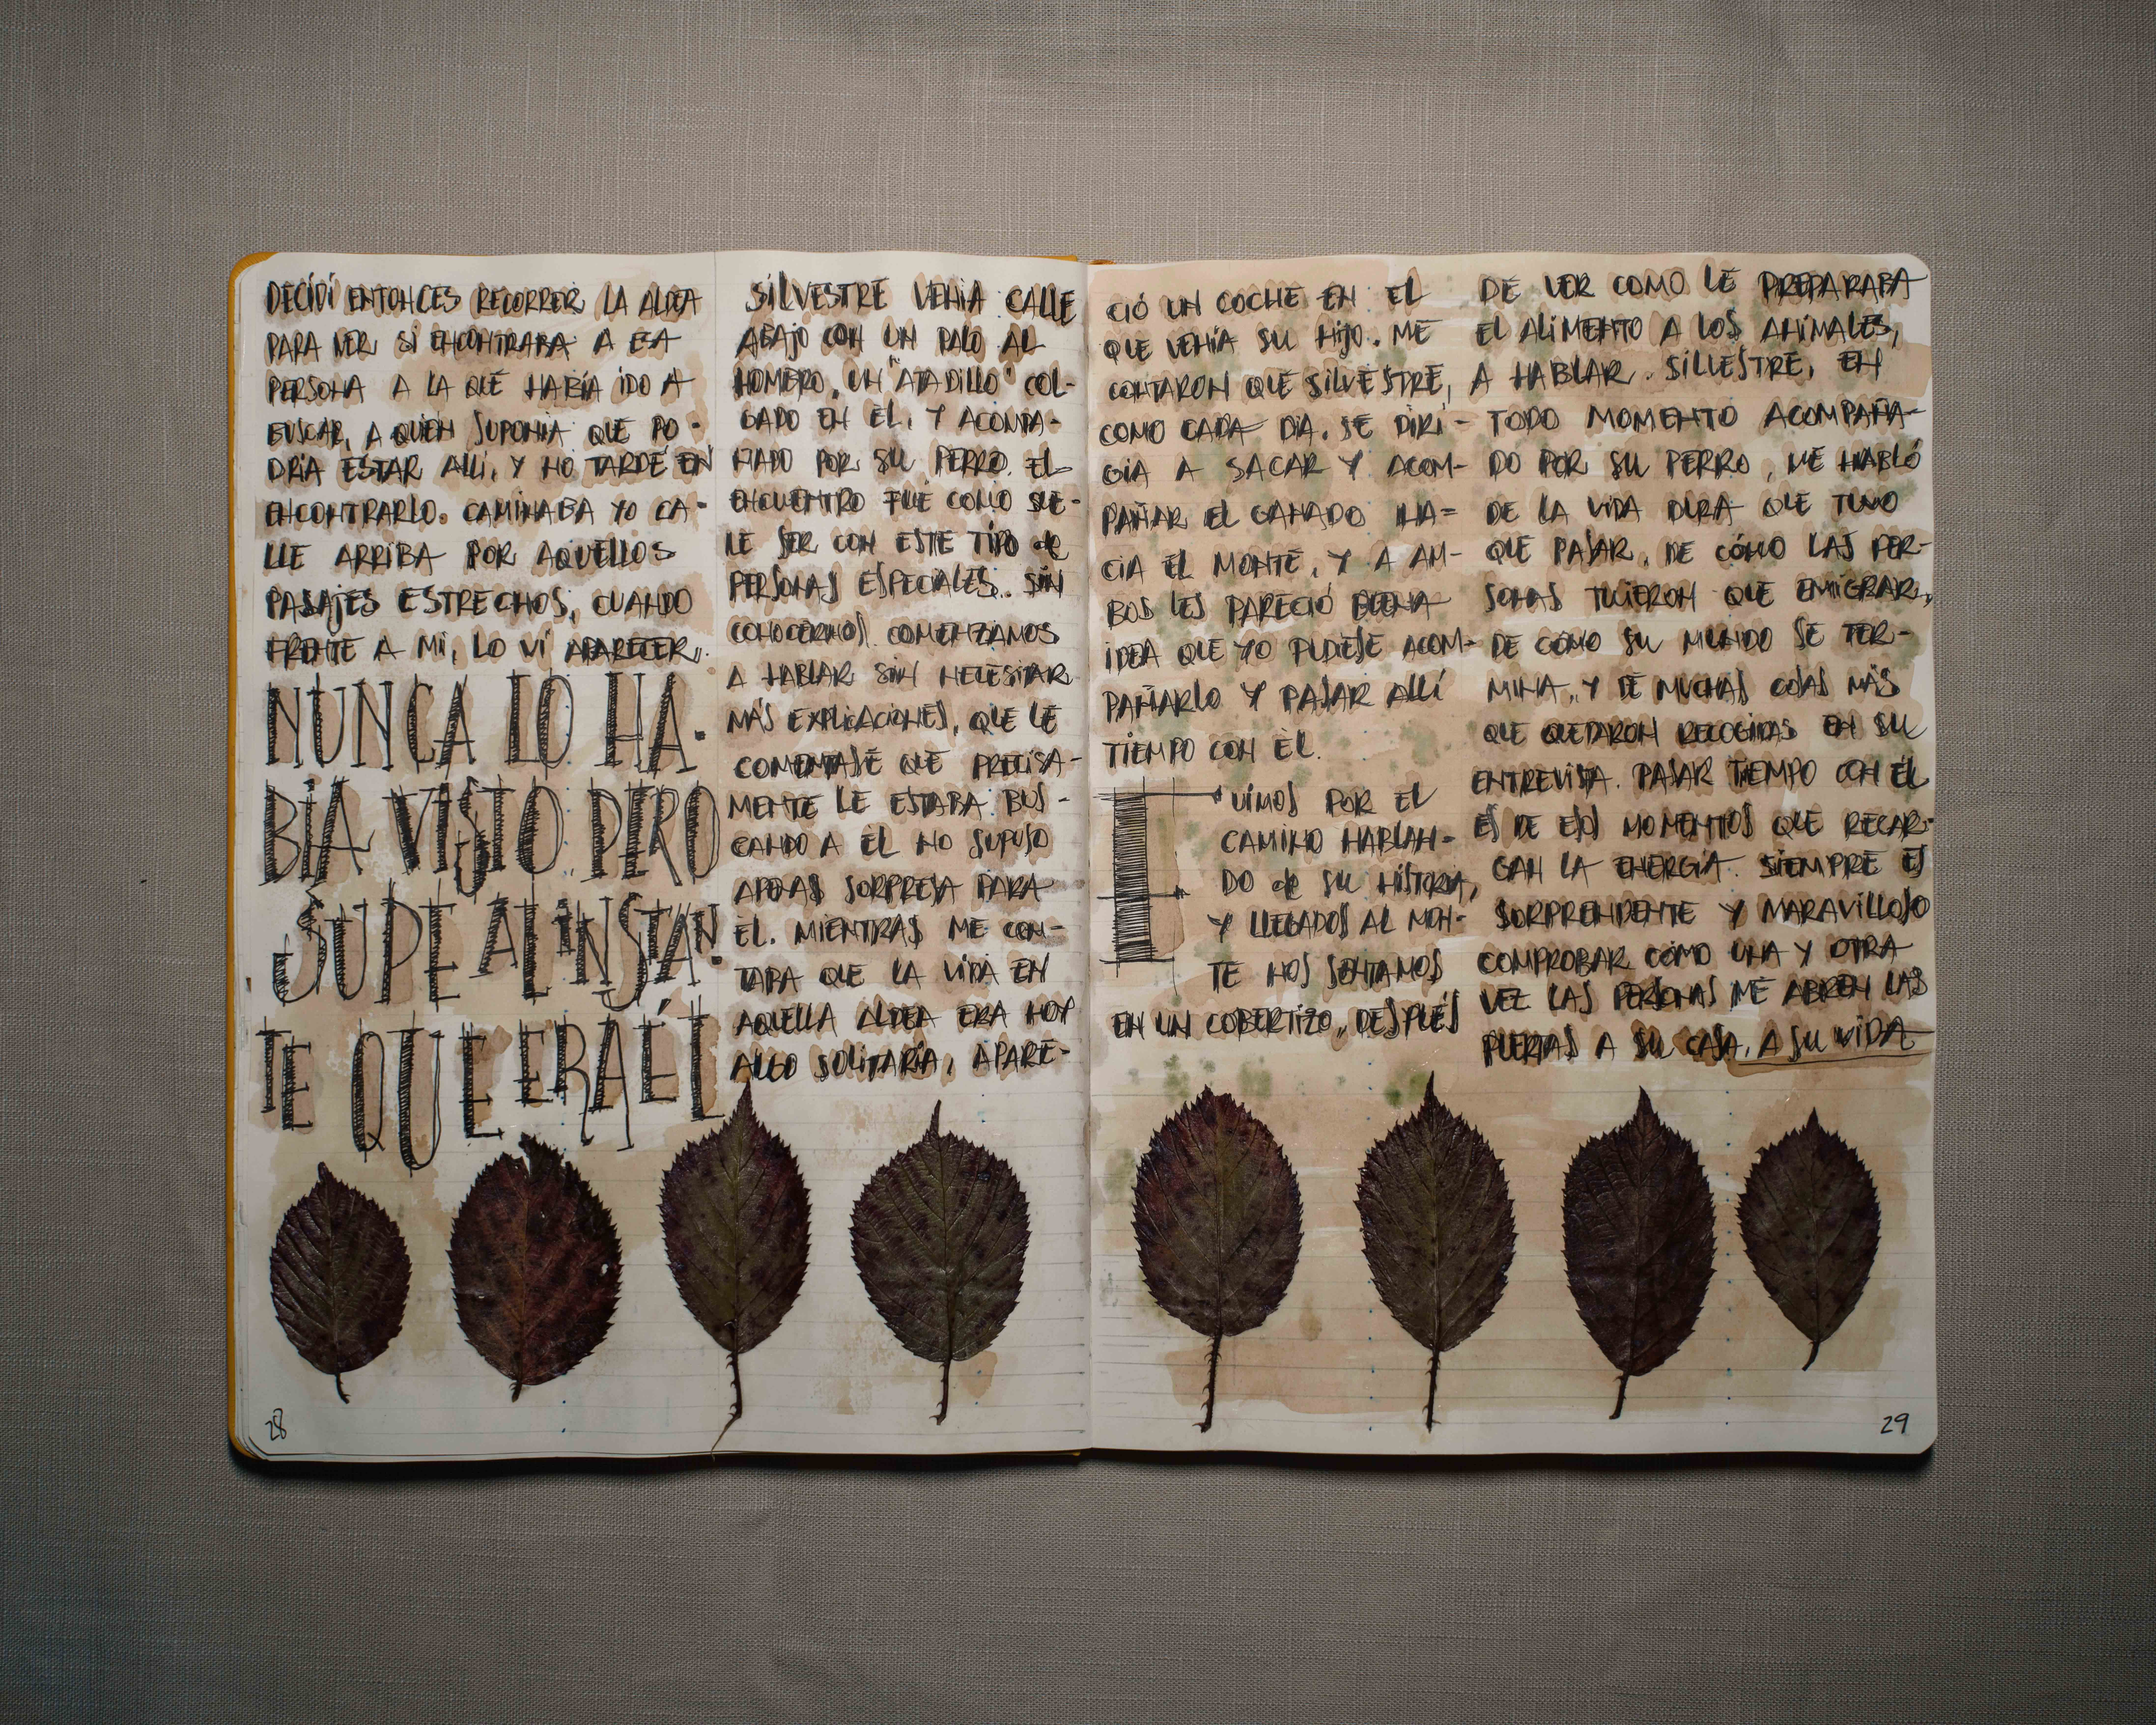 DECIDÍ ENTONCES RECORRER LA ALDEA
PARA VER SI ENCONTRABA A ESA
PERSONA A LA QUE HABÍA IDO A
BUSCAR, A QUIEN SUPONIA QUE PO-
DRÍA ESTAR ALLÍ, Y NO TARDÉ EN
ENCONTRARLO. CAMINABA YO CA-
LLE ARRIBA POR AQUELLOS
PASAJES ESTRECHOS, CUANDO
FRENTE A MI, LO VI APARECER..
NUNCA LO HA-
BÍA VISTO PERO
SUPE AL INSTAN-
TE QUE ERA ÉL
28
SILVESTRE VENIA CALLE
ABAJO CON UN PALO AL
HOMBRO, UN "ATADILLO" COL-
GADO EN ÉL, Y ACOMPA-
ÑADO POR SU PERRO. EL
ENCUENTRO FUE COMO SUE-
LE SER CON ESTE TIPO de
PERSONAS ESPECIALES.. SIN
CONOCERNOS. COMENZAMOS
A HABLAR SIN NECESITAR
MÁS EXPLICACIONES, QUE LE
COMENTASE QUE PRECISA-
MENTE LE ESTABA BUS-
CANDO A ÉL NO SUPUSO
APENAS SORPRESA PARA
ÉL. MIENTRAS ME CON-
TABA QUE LA VIDA EN
AQUELLA ALDEA ERA HOY
ALGO SOLITARIA, APARE-
CIÓ UN COCHE EN EL
QUE VENÍA SU HIJO. ME
CONTARON QUE SILVESTRE,
COMO CADA DÍA, SE DIRI-
GÍA A SACAR Y ACOM-
PAÑAR EL GANADO HA-
CIA EL MONTE, Y A AM-
BOS LES PARECIÓ BUENA
IDEA QUE YO PUDIESE ACOM-
PAÑARLO Y PASAR ALLÍ
TIEMPO CON ÉL.
FUIMOS POR EL
CAMINO HABLAN-
DO de SU HISTORIA,
Y LLEGADOS AL MON-
TE NOS SENTAMOS
EN UN COBERTIZO, DESPUÉS
DE VER COMO LE PREPARABA
EL ALIMENTO A LOS ANIMALES,
A HABLAR. SILVESTRE, EN
TODO MOMENTO ACOMPAÑA-
DO POR SU PERRO, ME HABLÓ
DE LA VIDA DURA QUE TUVO
QUE PASAR, DE CÓMO LAS PER-
SONAS TUVIERON QUE EMIGRAR,
DE CÓMO SU MUNDO SE TER-
MINA, Y DE MUCHAS COSAS MÁS
QUE QUEDARON RECOGIDAS EN SU
ENTREVISTA. PASAR TIEMPO CON ÉL
ES DE ESOS MOMENTOS QUE RECAR-
GAN LA ENERGÍA. SIEMPRE ES
SORPRENDENTE Y MARAVILLOSO
COMPROBAR CÓMO UNA Y OTRA
VEZ LAS PERSONAS ME ABREN LAS
PUERTAS A SU CASA, A SU VIDA
29